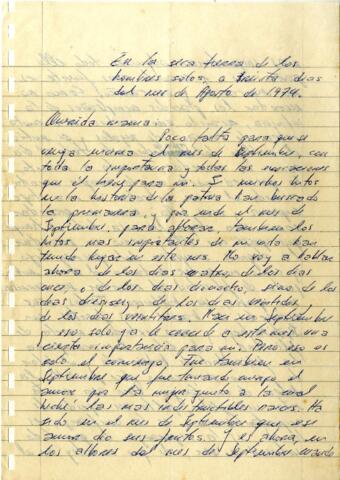 En la era fuera de los
hombres solos, a treinta días
del mes de Agosto de 1974.
Querida mamá:
Poco falta para que se
venga encima el mes de Septiembre, con
toda la importancia y todas las
que él tiene para mí. Y muchos hitos
en la historia de la patria han buscado
la primavera, y por ende el mes de
Septiembre, para aflorar, también los
hitos más importantes de mi vida han
tenido lugar en este mes. No voy a hablar
ahora de los días cuatro, de los días
once, o de los días dieciocho, sino de los
días de los días veintidós
de los días Nací en Septiembre
y eso solo ya le concede a este mes una
cierta importancia para mí. Pero eso es
solo el comienzo. Fue también en
Septiembre que fue tomando cuerpo el
amor por la mujer junto a la cual
he las más indestructibles Ha
sido en el mes de Septiembre que ese
amor dio sus frutos. Y es ahora, en
los albores del mes de Septiembre cuando